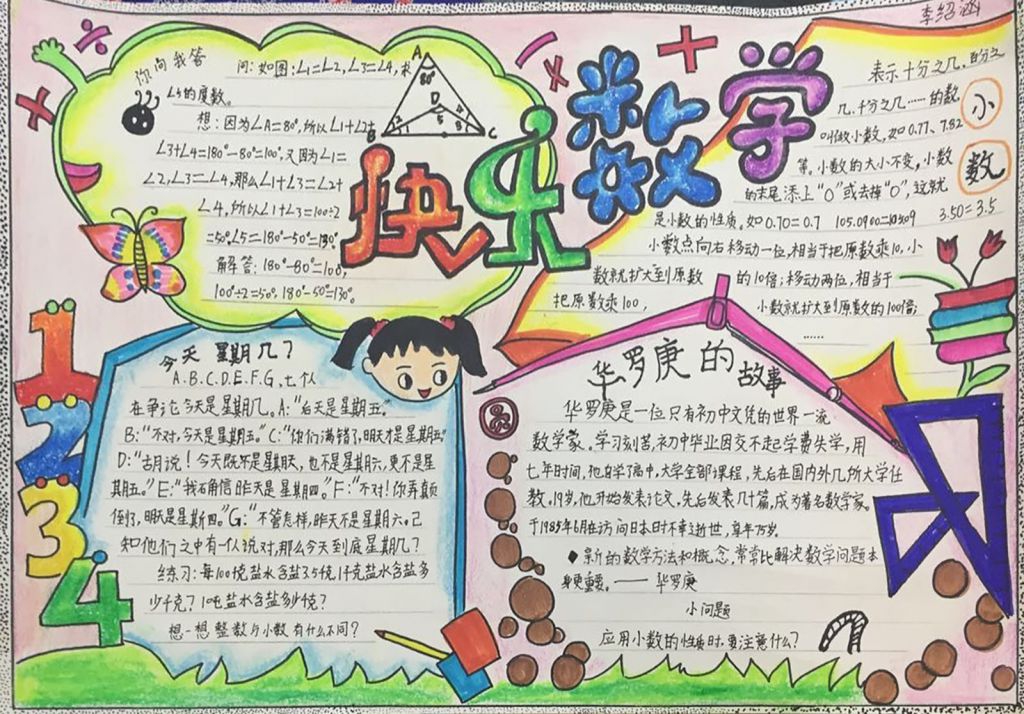 李绍涵
快乐数学
你问我答
问:如图:∠1=∠2,∠3=∠4,求
∠5的度数。
想:因为∠A=80°,所以∠1+∠2+
∠3+∠4=180°-80°=100°,又因为∠1=
∠2,∠3=∠4,那么∠1+∠3=∠2+
∠4,所以∠1+∠3=100÷2
=50°∠5=180°-50°=130°
解答:180°-80°=100,
100°÷2=50°,180°-50°=130°。
A
80°
D
B
C
小数
表示十分之几、百分之
几、千分之几……的数,
叫做小数,如0.77、7.82
等。小数的大小不变,小数
的末尾添上“0”或去掉“0”,这就
是小数的性质。如0.70=0.7
3.50=3.5
小数点向右移动一位,相当于把原数乘10,小
数就扩大到原数 的10倍;移动两位,相当于
把原数乘100, 小数就扩大到原数的100倍;
……
1
2
3
4
今天星期几?
A.B.C.D.E.F.G.七个人
在争论今天是星期几。A:“后天是星期五。”
B:“不对,今天是星期五。”C:“你们满错了,明天才是星期五。”
D:“古月说!今天既不是星期天,也不是星期六,更不是星
期五。”E:“我石角信昨天是星期四。”F:“不对!你弄颠
倒了,明天是星期四。”G:“不管怎样,昨天不是星期六。”己
知他们之中有一个人说对,那么今天到底星期几?
练习:每100克盐水含盐3.5克,1千克盐水含盐多
少千克?1吨盐水含盐多少千克?
想一想整数与小数有什么不同?
圆
华罗庚的故事
华罗庚是一位只有初中文凭的世界一流
数学家。学习刻苦,初中毕业因交不起学费失学,用
七年时间,他自学了高中,大学全部课程,先后在国内外几所大学任
教。19岁,他开始发表论文,先后发表几十篇,成为著名数学家。
于1985年6月在访问日本时不幸逝世,享年75岁。
◆新的数学方法和概念,常常比解决数学问题本
身更重要。——华罗庚
小问题
应用小数的性质时,要注意什么?